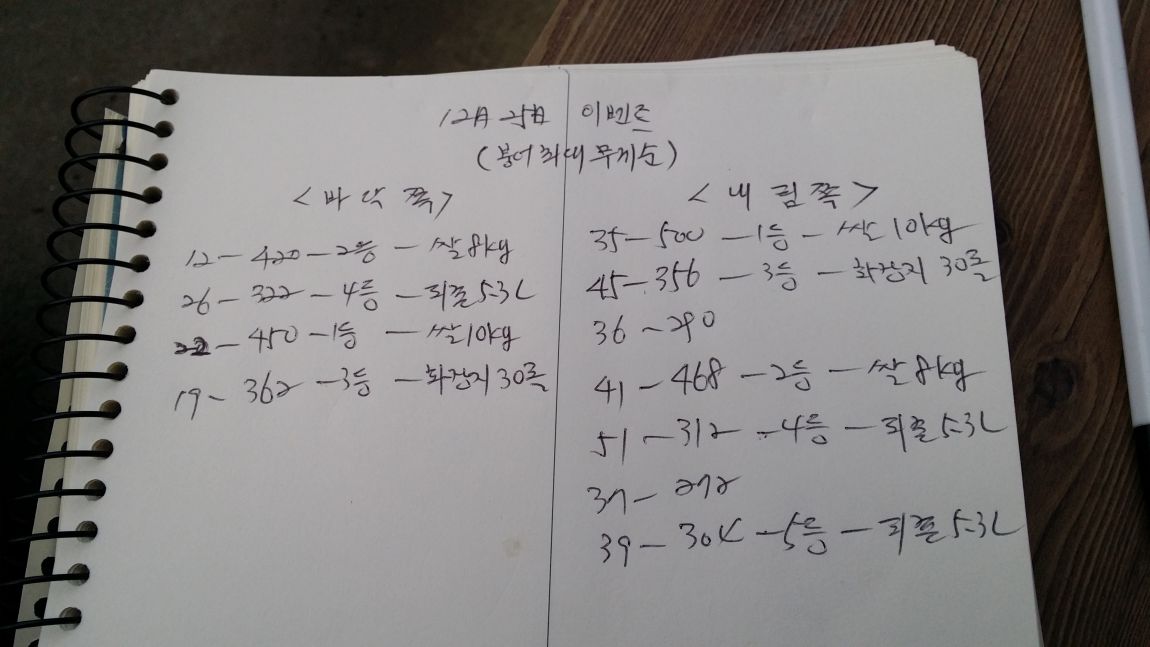 12月 25日 이벤트
(붕어 최대 무게순)
<바닥쪽>
12 - 420 - 2등 - 쌀 8kg
26 - 322 - 4등 - 퍼줄 5.3L
22 - 450 - 1등 - 쌀 10kg
19 - 362 - 3등 - 화장지 30롤
<내림쪽>
35 - 500 - 1등 - 쌀 10kg
45 - 356 - 3등 - 화장지 30롤
36 - 290
41 - 468 - 2등 - 쌀 8kg
51 - 312 - 4등 - 퍼줄 5.3L
37 - 272
39 - 304 - 5등 - 퍼줄 5.3L